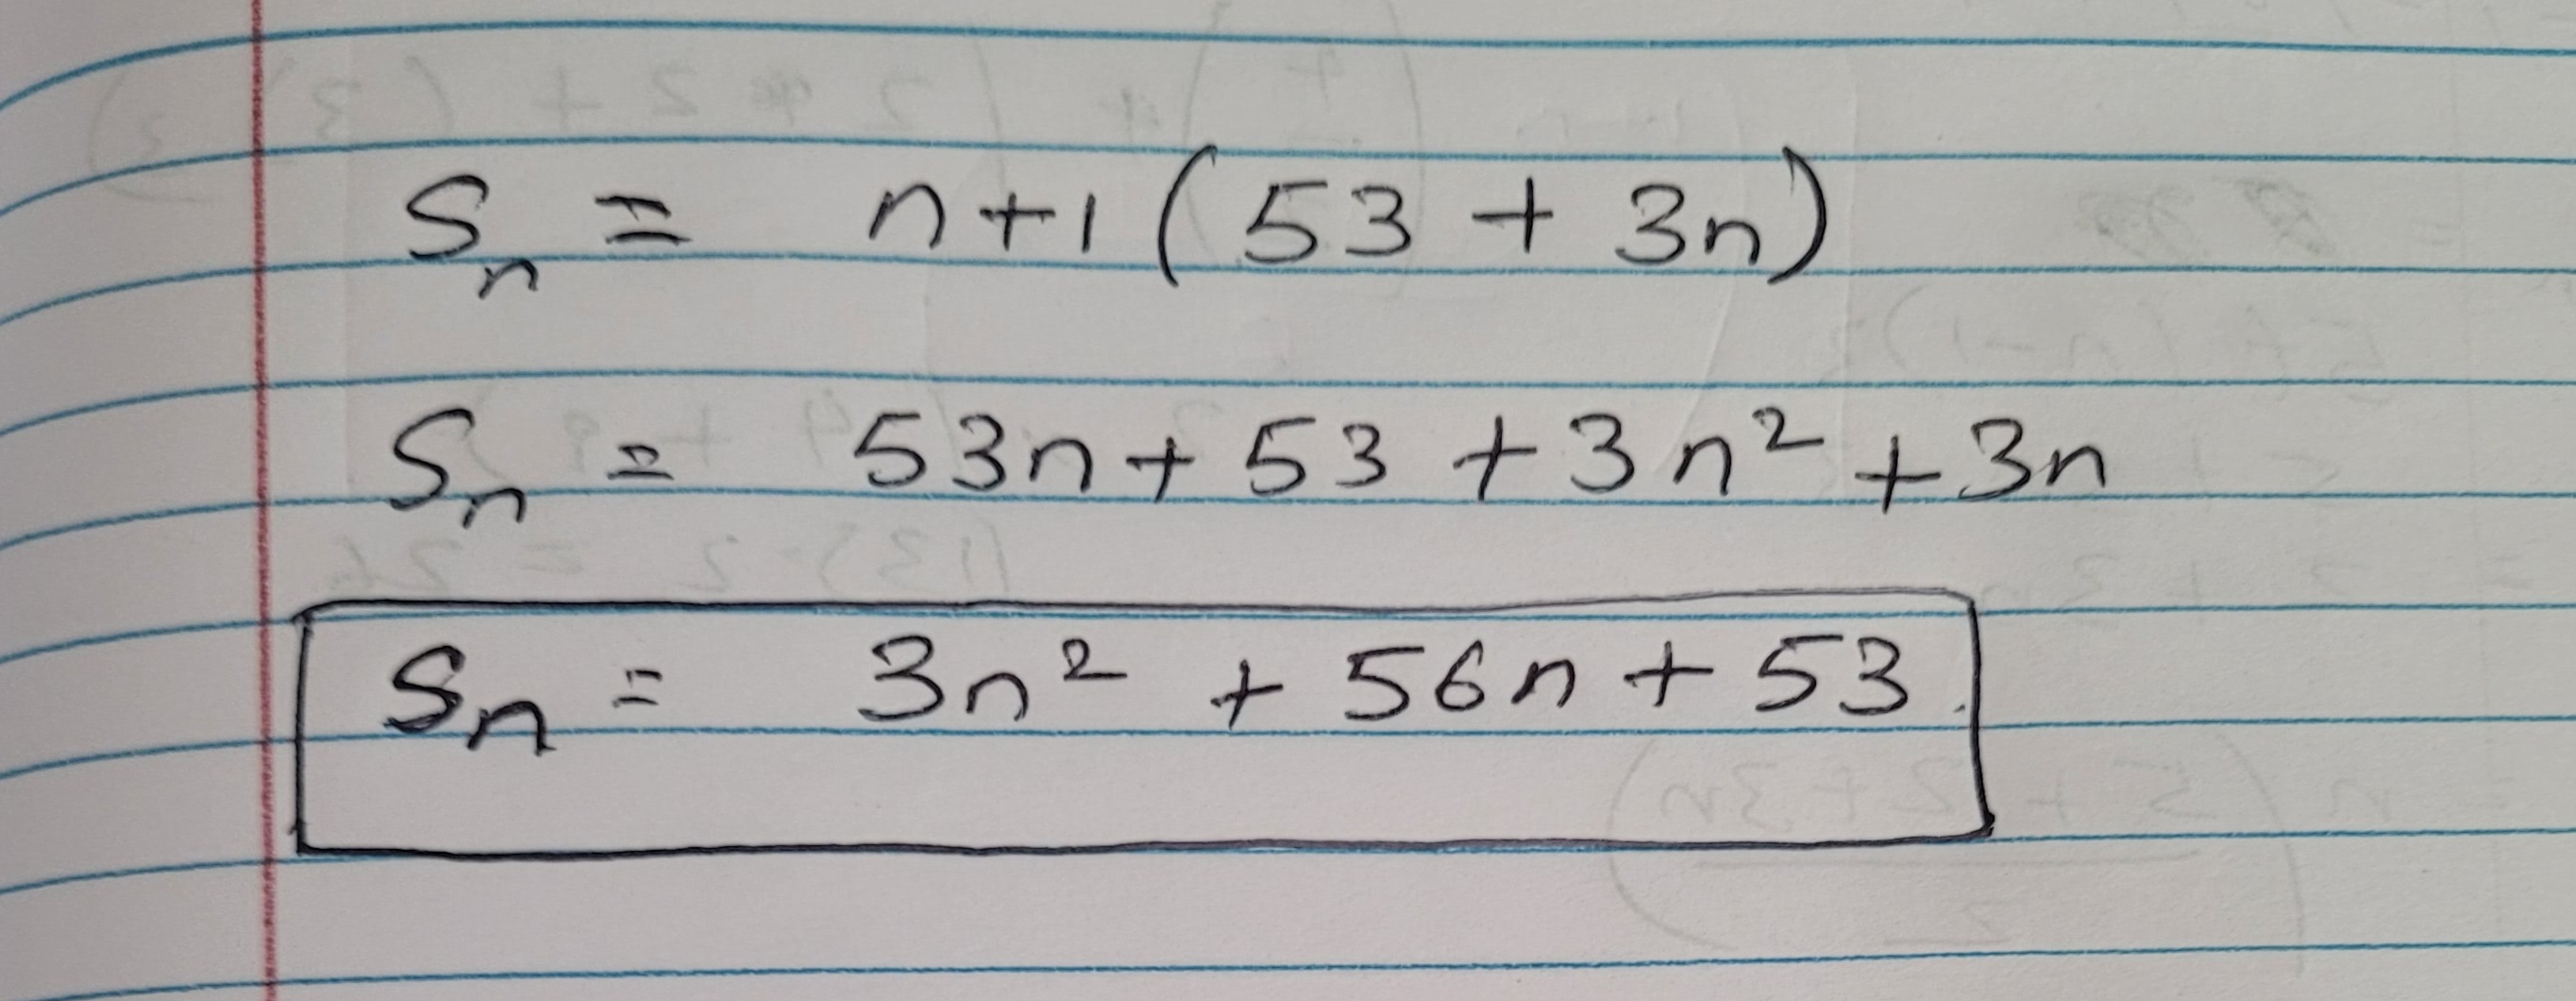 Sₙ = n+1(53 + 3n)
Sₙ = 53n + 53 + 3n² + 3n
Sₙ = 3n² + 56n + 53